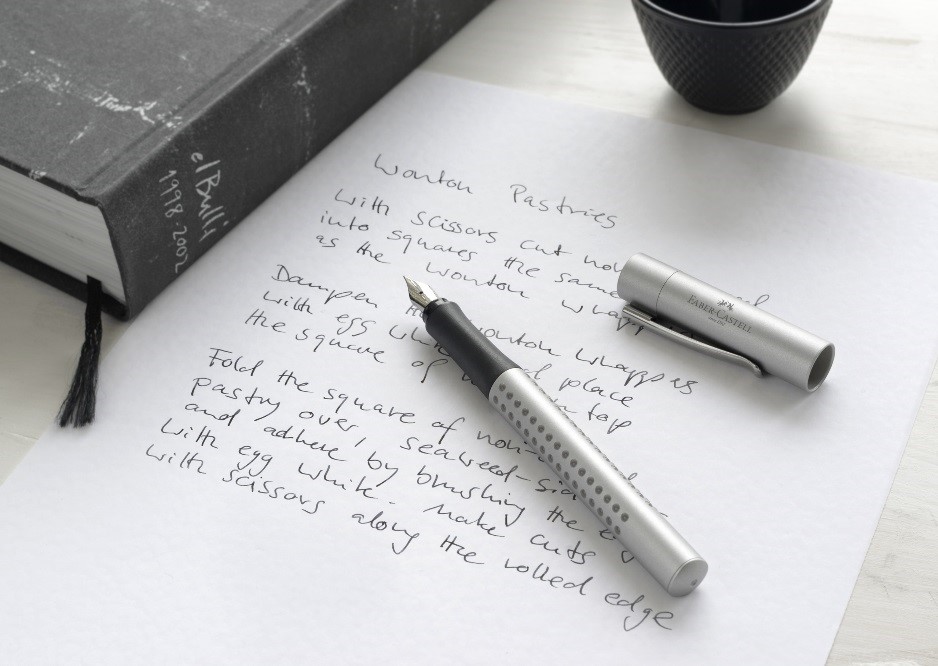 elBulli
1998-2002
Wonton Pastries
With scissors cut
into squares the same
as the wonton
Dampen wonton
with egg place
the square of
Fold the square of
pastry over, seaweed-
and adhere by brushing the
with egg white. Make cuts
with scissors along the rolled edge
FABER-CASTELL